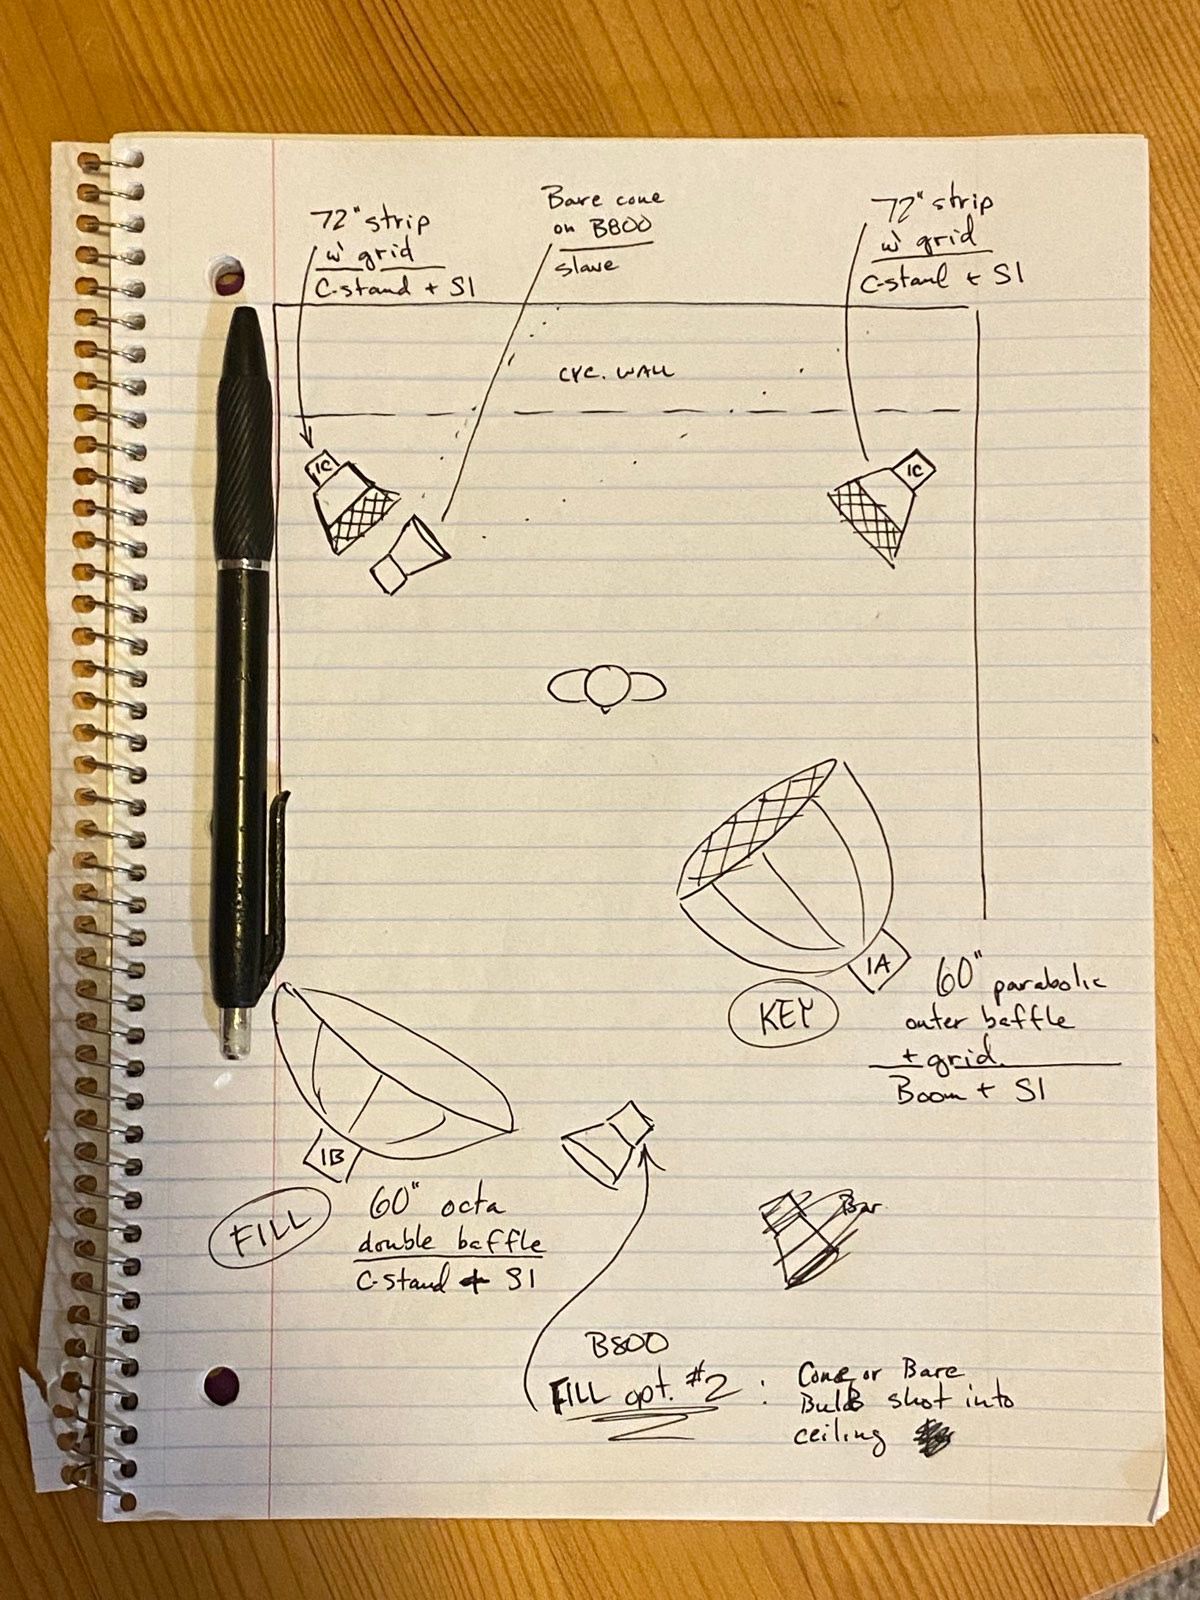 72" strip
w/ grid
C-stand + S1
Bare cone
on B800
slave
72" strip
w/ grid
C-stand + S1
CYC. WALL
1C
1C
1A
KEY
60" parabolic
outer baffle
+ grid
Boom + S1
1B
FILL
60" octa
double baffle
C-stand + S1
Bar
B800
FILL opt. #2 :
Cone or Bare
Bulb shot into
ceiling